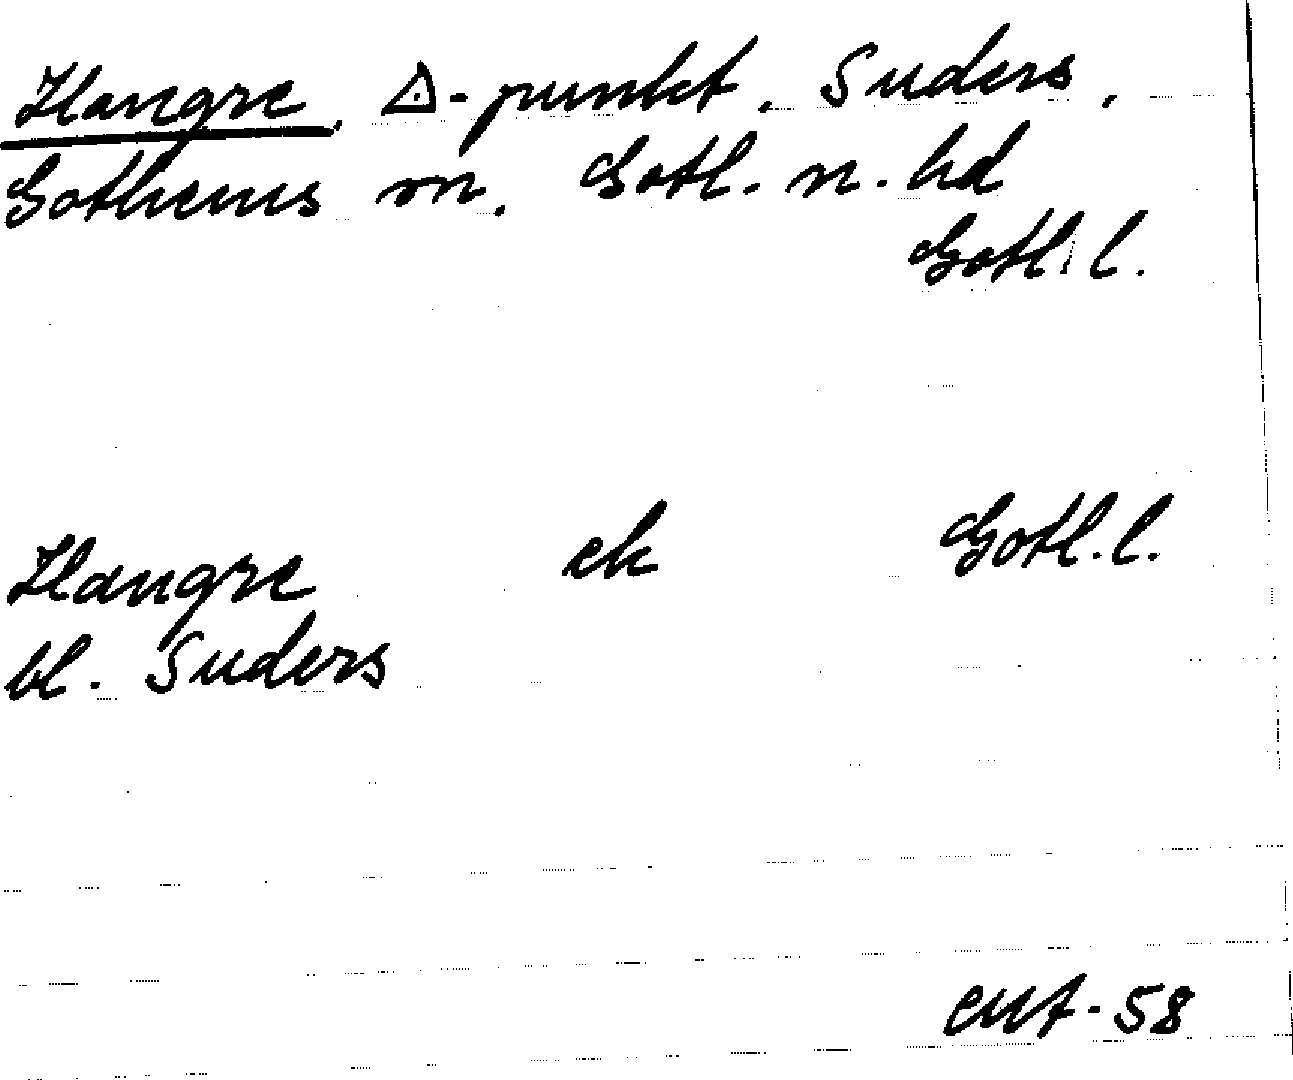 Hangre, △-punkt. Suders,
Gothems sn. Gotl. n. hd
Gotl. l.
Hangre ek Gotl. l.
bl. Suders
-58